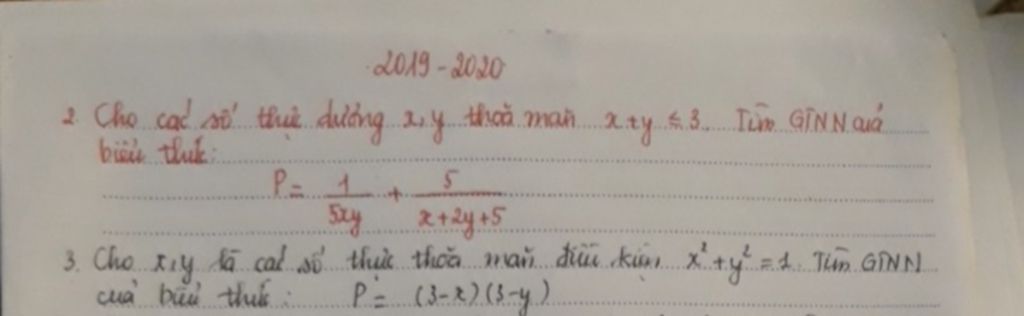 2019-2020
2. Cho các số thực dương x, y thoả mãn x+y ≤ 3. Tìm GTNN của
biểu thức:
P = 1/5xy + 5/x+2y+5
3. Cho x, y là các số thực thoả mãn điều kiện x²+y²=1. Tìm GTNN
của biểu thức: P = (3-x)(3-y)